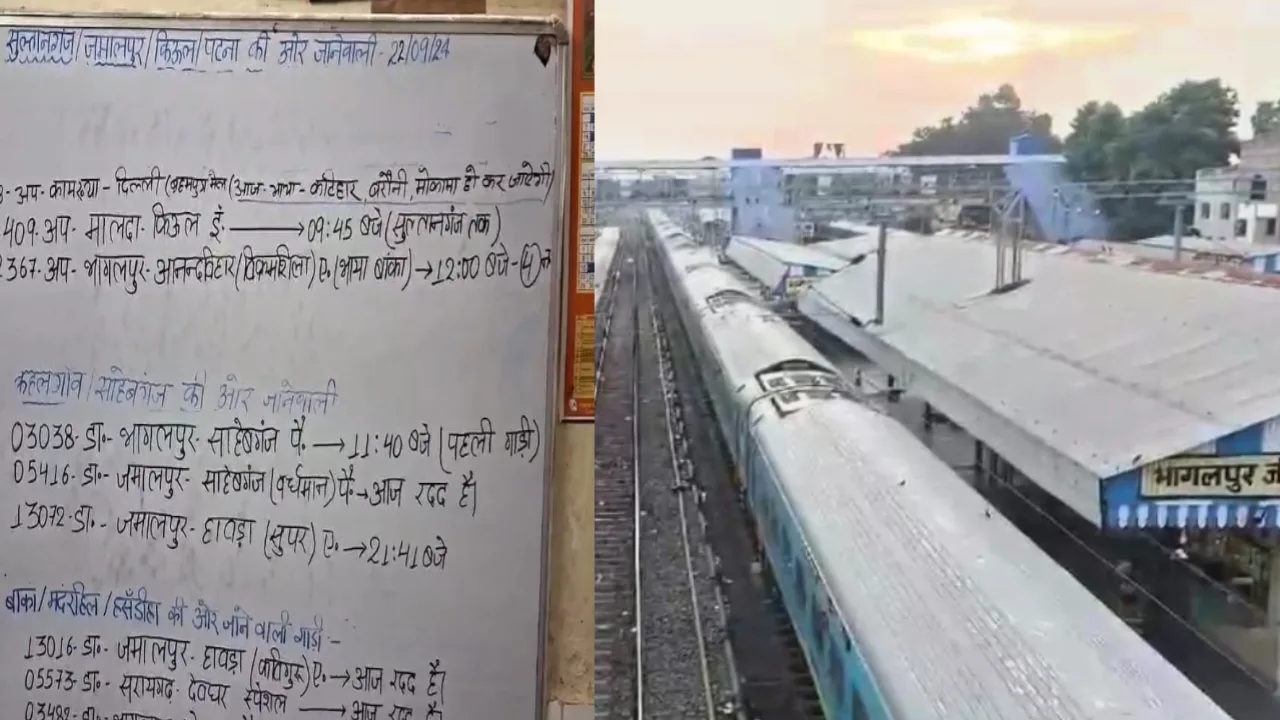 सुल्तानगंज/जमालपुर/किऊल/पटना की ओर जानेवाली - 22/09/24
अप - कामाख्या - दिल्ली (ब्रह्मपुत्र मेल (आज - भाया - कटिहार, बरौनी, मोकामा हो कर जायेगी)
409. अप - मालदा - किऊल इं. → 09:45 बजे (सुल्तानगंज तक)
367. अप - भागलपुर - आनन्दविहार (विक्रमशिला) ए. (भाया बांका) → 12:00 बजे - (4)
कहलगाँव/साहेबगंज की ओर जानेवाली
03038 - डा. - भागलपुर - साहेबगंज पै. → 11:40 बजे (पहली गाड़ी)
05416 - डा. - जमालपुर - साहेबगंज (वर्धमान) पै. → आज रदद है।
13072 - डा. - जमालपुर - हावड़ा (सुपर) ए. → 21:41 बजे
बांका/मंदारहिल/हंसडीहा की ओर जाने वाली गाड़ी -
13016 - डा. - जमालपुर - हावड़ा (कविगुरू) ए. → आज रदद है।
05573 - डा. - सरायगढ़ - देवघर स्पेशल → आज रदद है।
भागलपुर